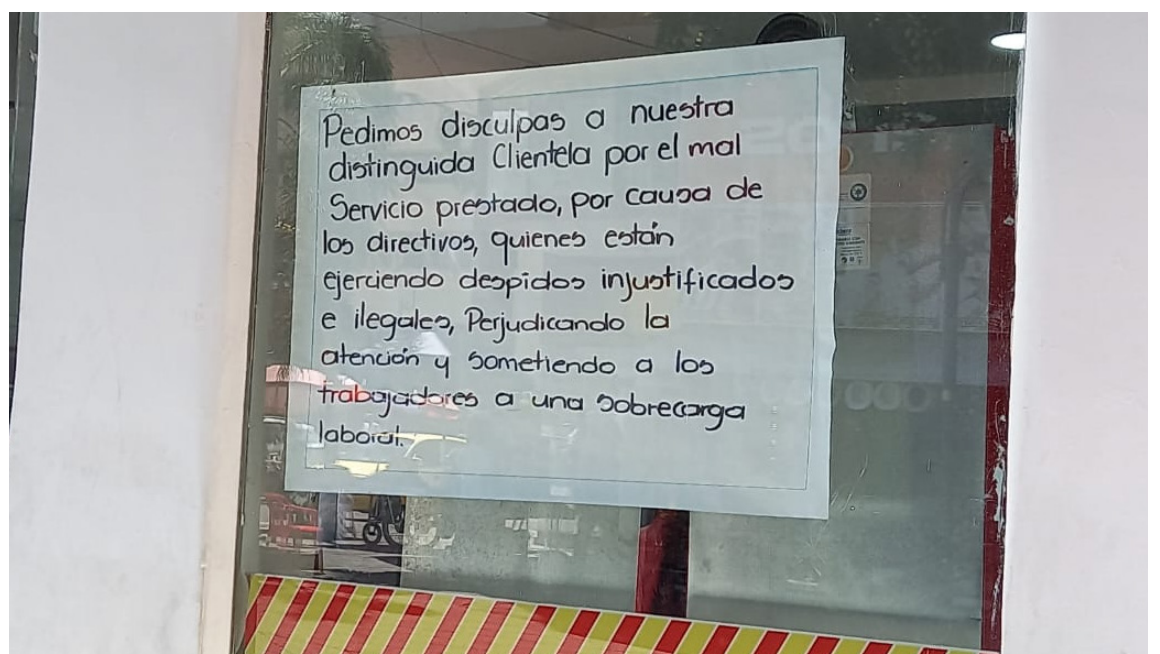 Pedimos disculpas a nuestra
distinguida Clientela por el mal
Servicio prestado, por causa de
los directivos, quienes están
ejerciendo despidos injustificados
e ilegales, Perjudicando la
atención y sometiendo a los
trabajadores a una sobrecarga
laboral.